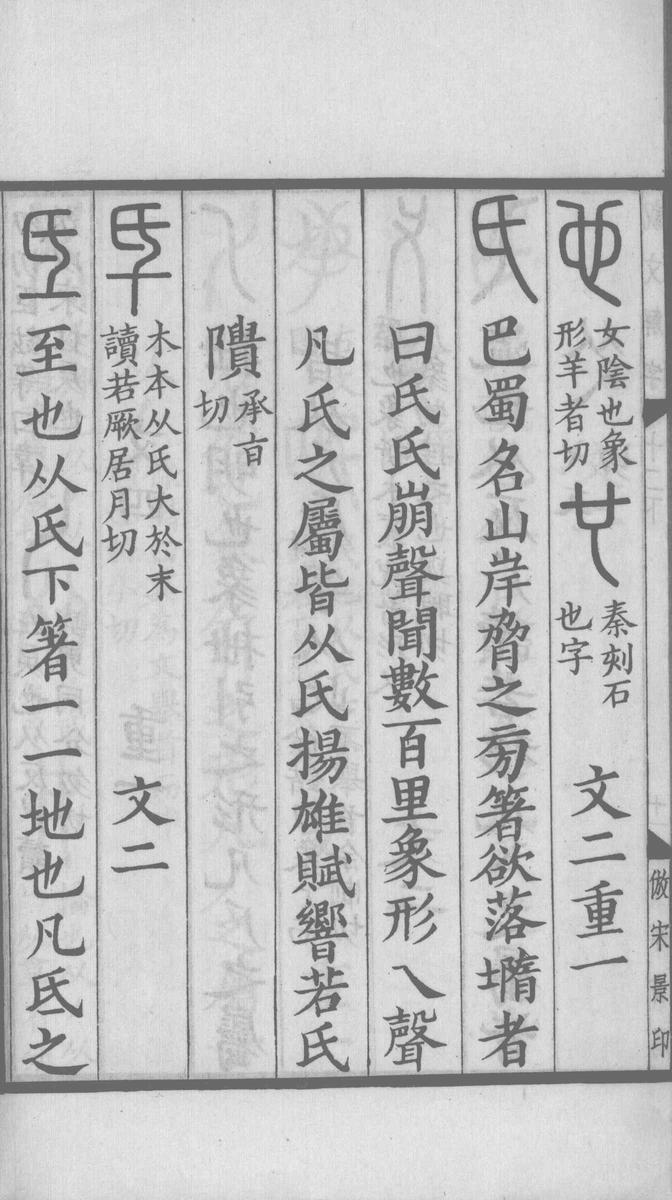 也女陰也象形羊者切 秦刻石也字 文二 重一
氏巴蜀名山岸脅之㫄箸欲落墮者
曰氏氏崩聲聞數百里象形乁聲
凡氏之屬皆从氏揚雄賦響若氏
隤承旨切
氒木本从氏大於末讀若厥居月切 文二
氐至也从氏下箸一一地也凡氐之
倣宋景印